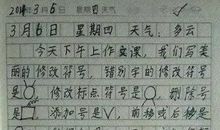 3月6日 星期四 天气：多云
今天下午上作文课，我们写美
丽的修改符号，错别字的修改符号
是○，修改标点符号是○，删除号
是，添加号是∨，前移或后移是